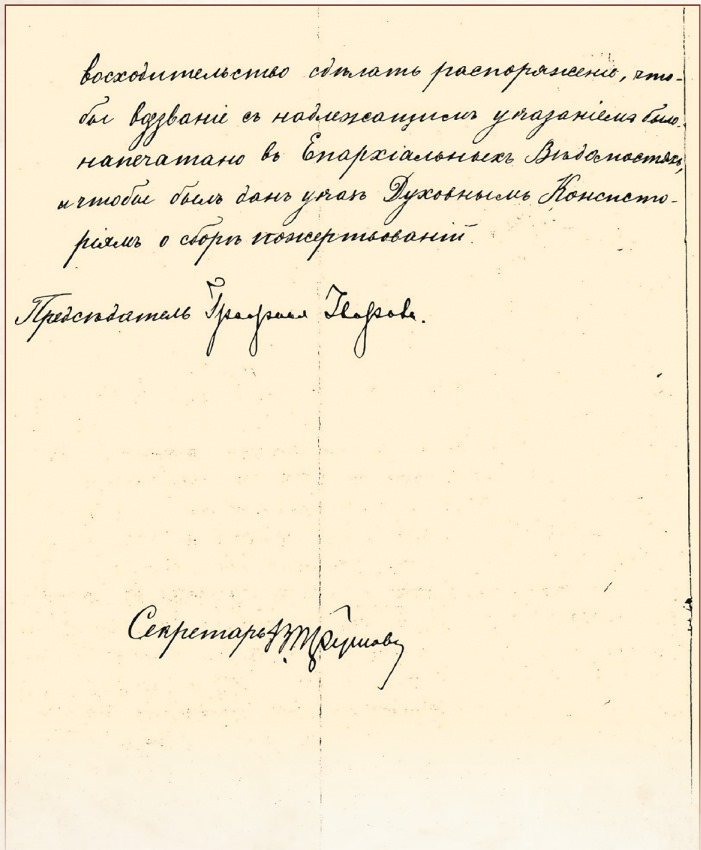 восходительство сдѣлать распоряженіе, что-
бы воззваніе съ надлежащимъ указаніемъ было
напечатано въ Епархіальныхъ Вѣдомостяхъ,
и чтобы былъ данъ указъ Духовнымъ Консисто-
ріямъ о сборѣ пожертвованій.
Предсѣдатель Графиня Уварова.
Секретарь